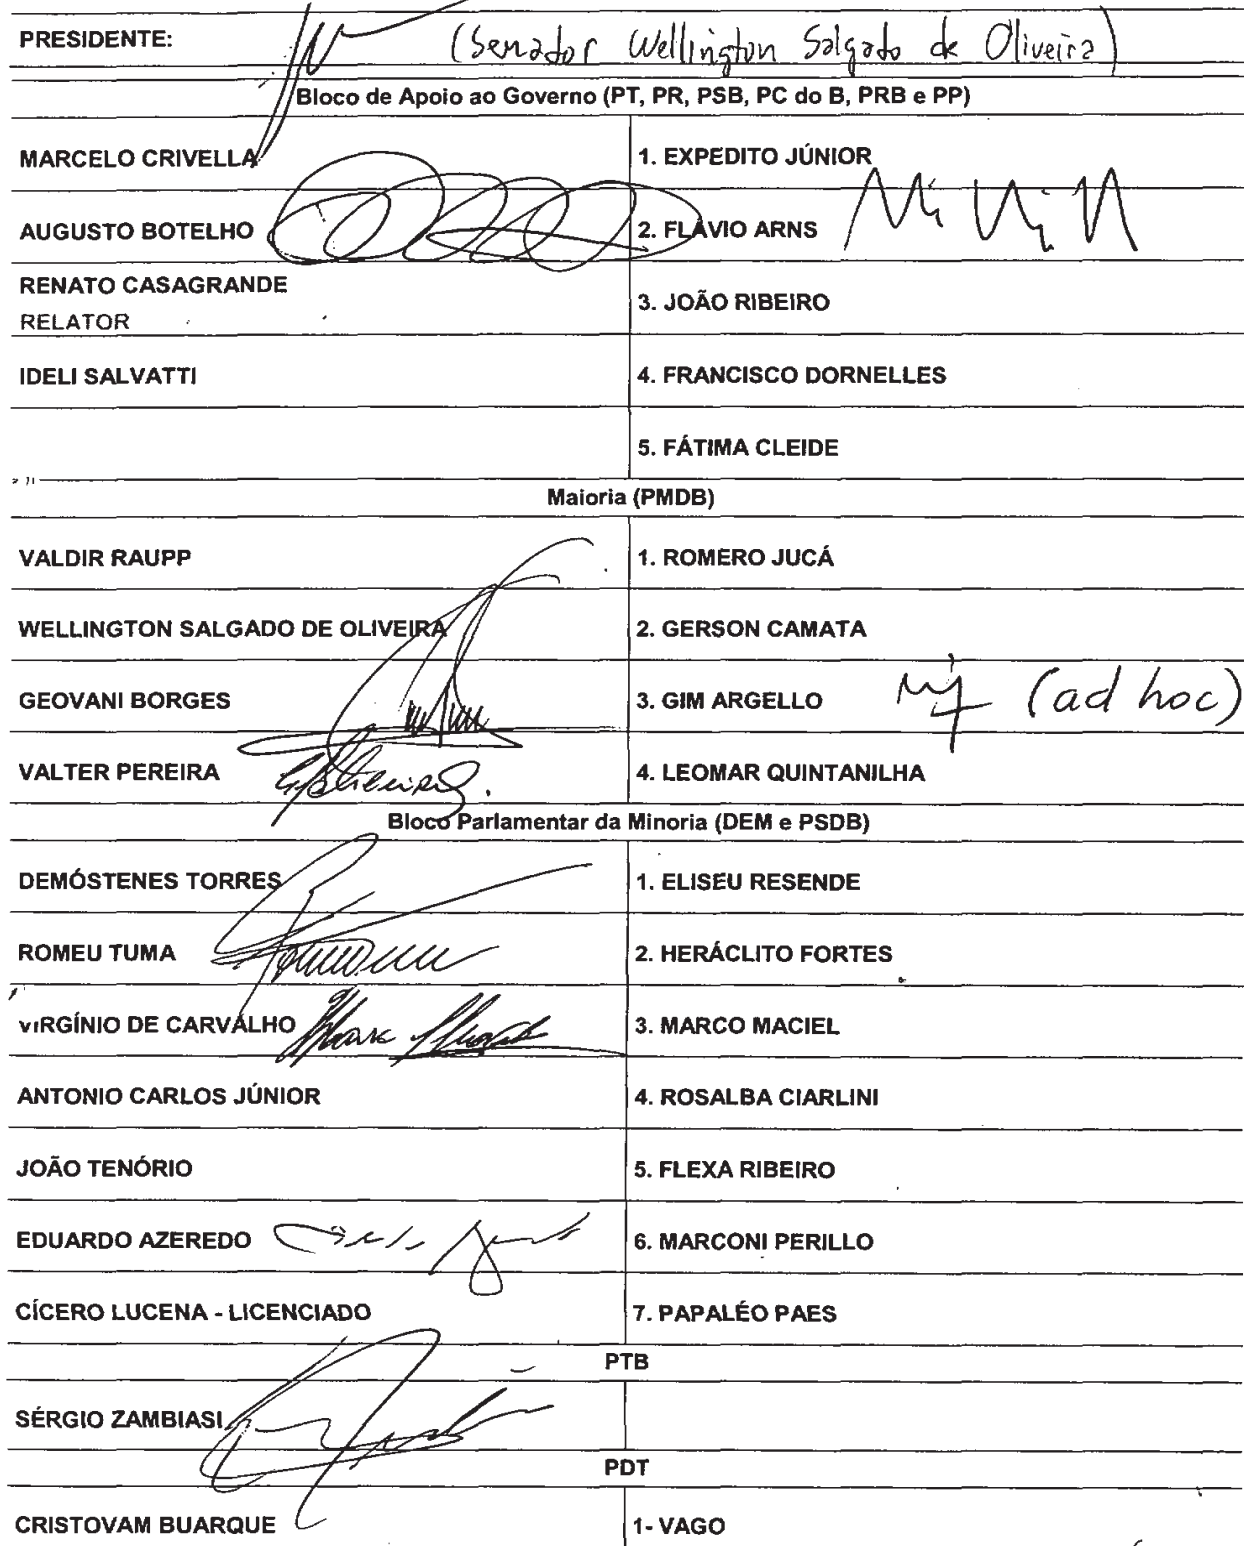 PRESIDENTE: (Senador Wellington Salgado de Oliveira)
Bloco de Apoio ao Governo (PT, PR, PSB, PC do B, PRB e PP)
MARCELO CRIVELLA 1. EXPEDITO JÚNIOR
AUGUSTO BOTELHO 2. FLÁVIO ARNS
RENATO CASAGRANDE
RELATOR 3. JOÃO RIBEIRO
IDELI SALVATTI 4. FRANCISCO DORNELLES
5. FÁTIMA CLEIDE
Maioria (PMDB)
VALDIR RAUPP 1. ROMERO JUCÁ
WELLINGTON SALGADO DE OLIVEIRA 2. GERSON CAMATA
GEOVANI BORGES 3. GIM ARGELLO (ad hoc)
VALTER PEREIRA 4. LEOMAR QUINTANILHA
Bloco Parlamentar da Minoria (DEM e PSDB)
DEMÓSTENES TORRES 1. ELISEU RESENDE
ROMEU TUMA 2. HERÁCLITO FORTES
VIRGÍNIO DE CARVALHO 3. MARCO MACIEL
ANTONIO CARLOS JÚNIOR 4. ROSALBA CIARLINI
JOÃO TENÓRIO 5. FLEXA RIBEIRO
EDUARDO AZEREDO 6. MARCONI PERILLO
CÍCERO LUCENA - LICENCIADO 7. PAPALÉO PAES
PTB
SÉRGIO ZAMBIASI
PDT
CRISTOVAM BUARQUE 1- VAGO